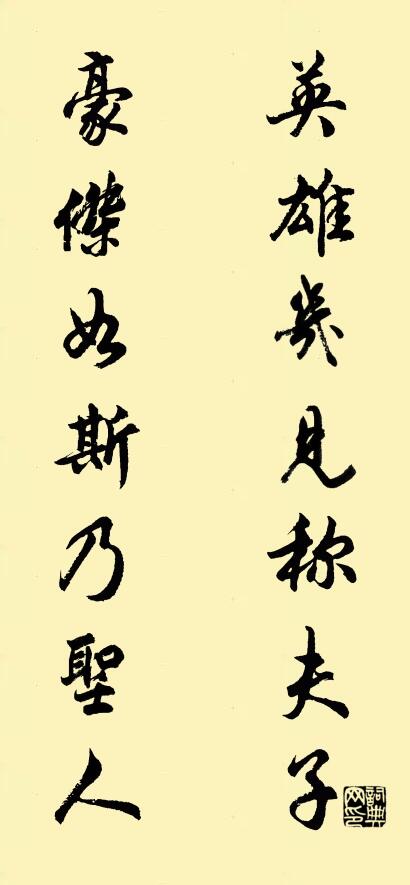 英雄幾見称夫子
豪傑如斯乃聖人
詞典网印